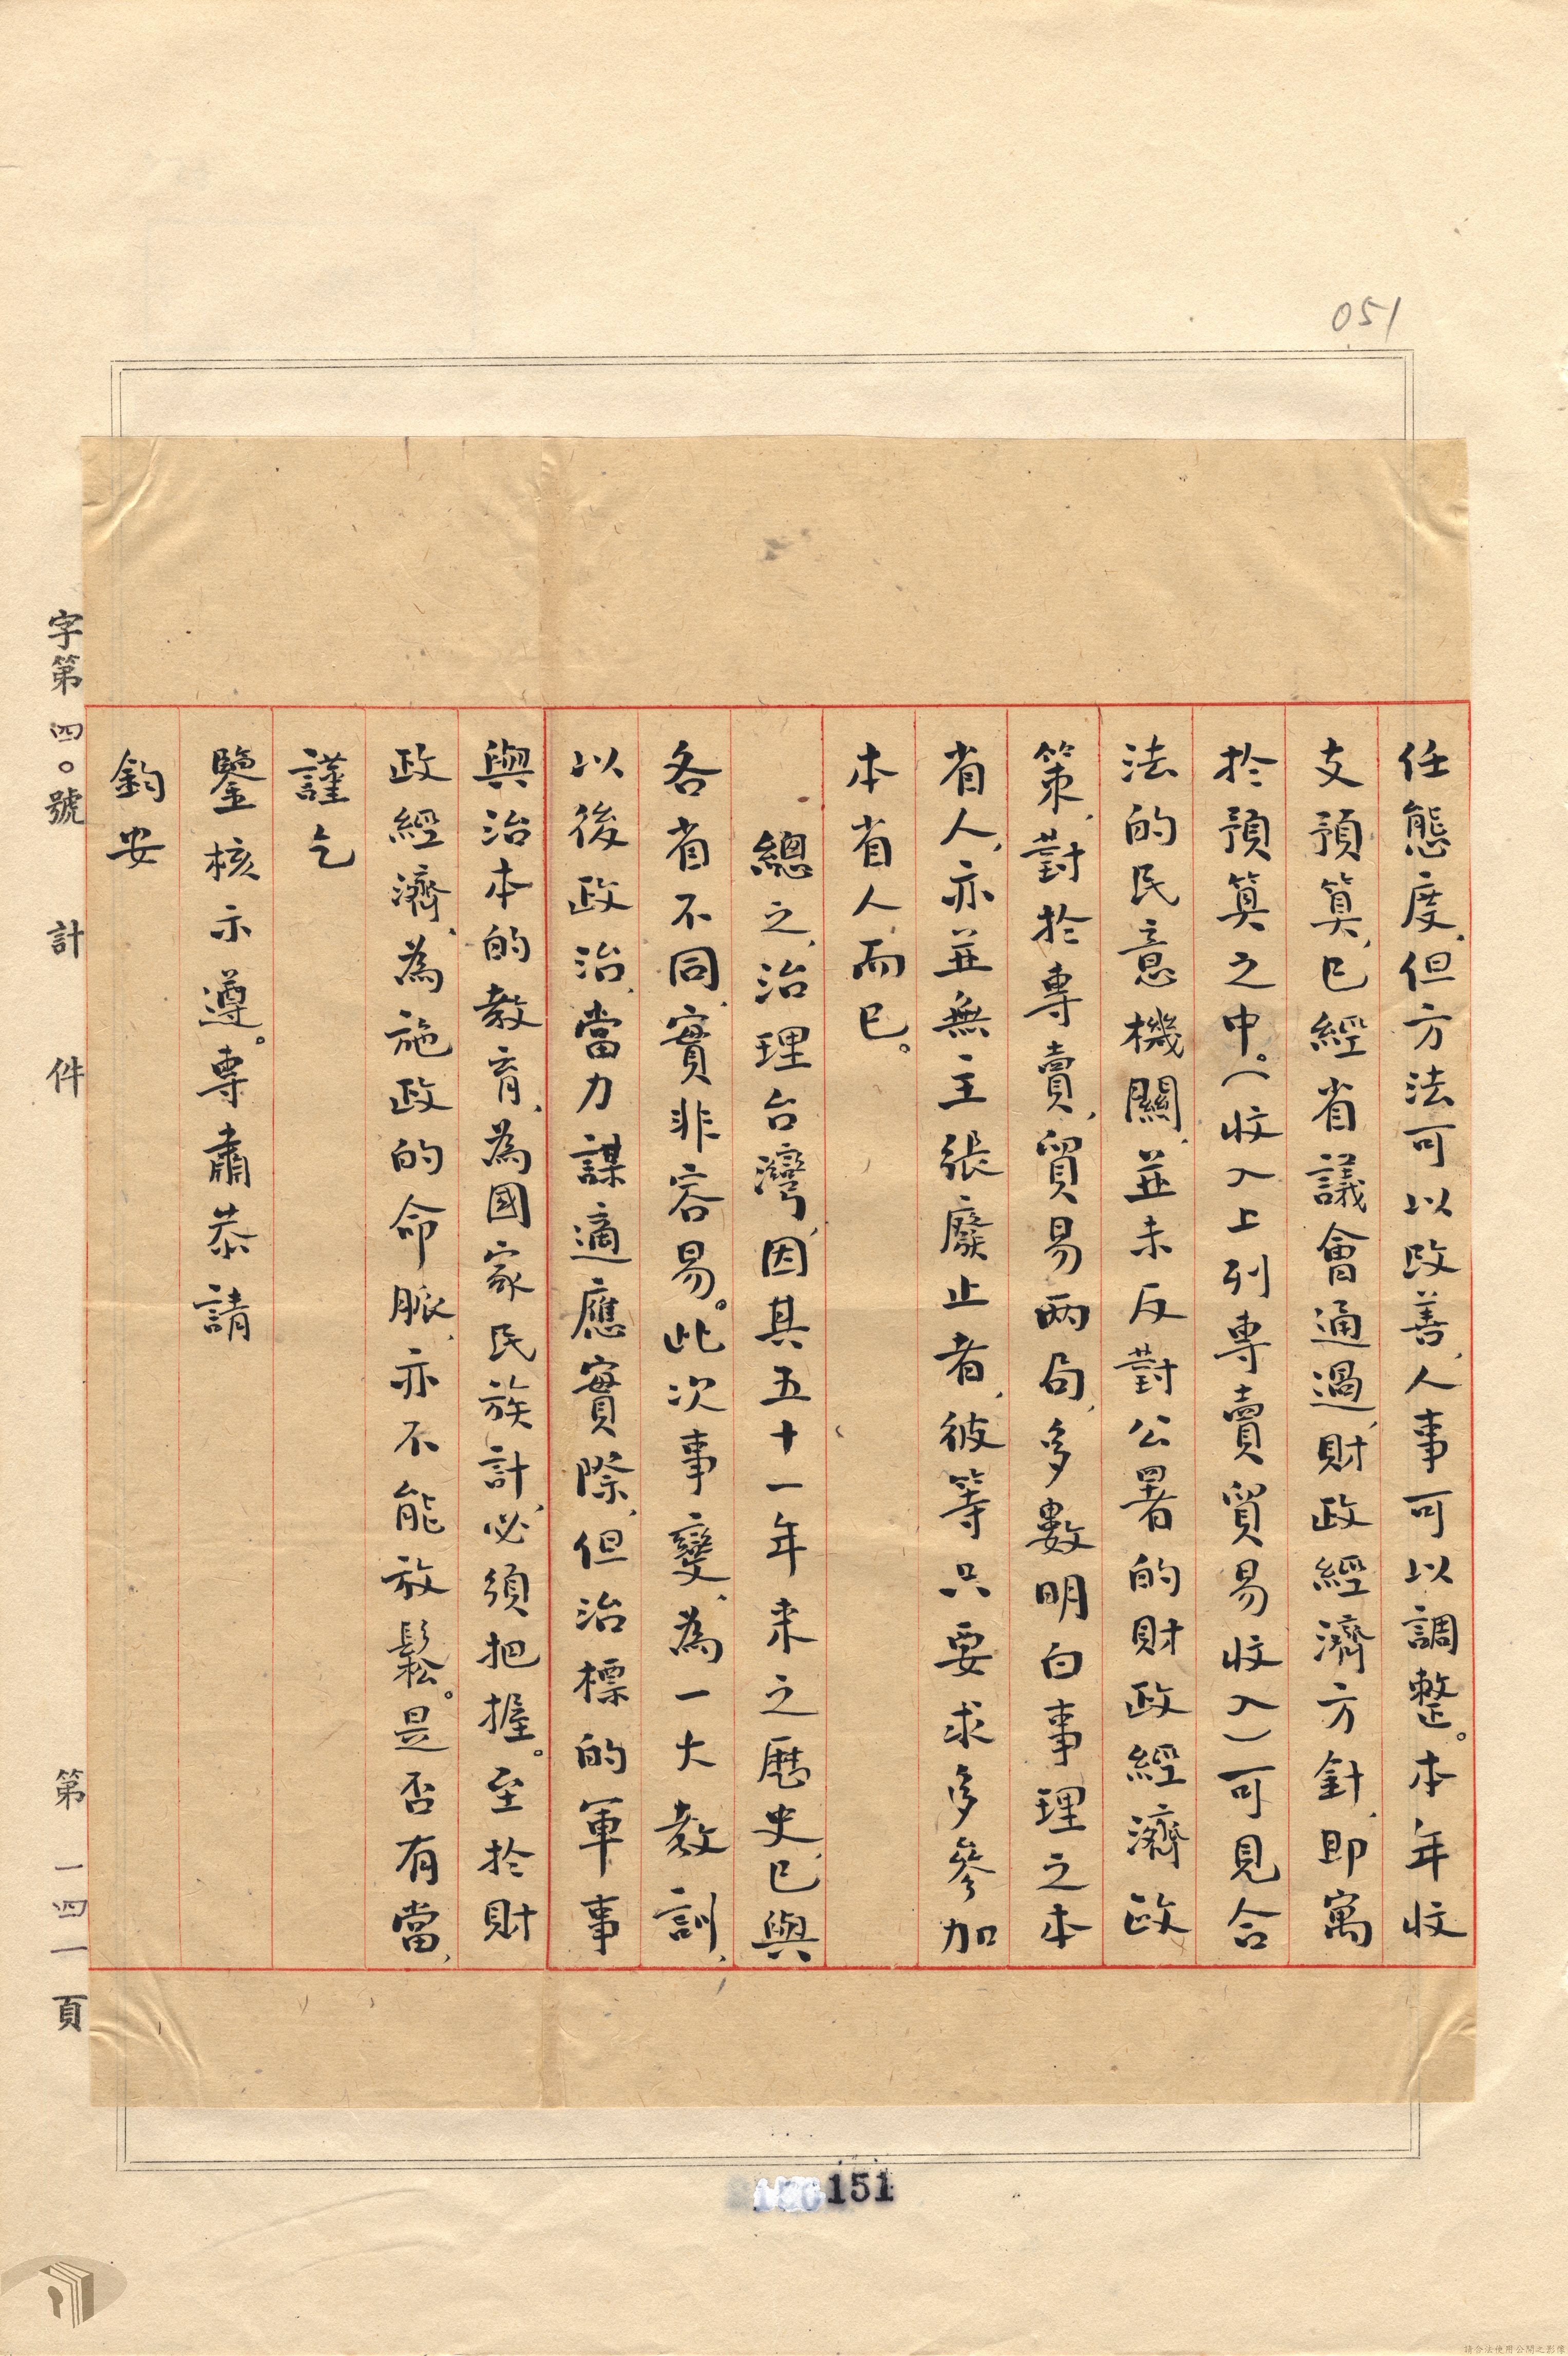 051
任態度，但方法可以改善，人事可以調整。本年收
支預算，已經省議會通過，財政經濟方針，即寓
於預算之中。（收入上列專賣貿易收入）可見合
法的民意機關，並未反對公署的財政經濟政
策，對於專賣，貿易兩局，多數明白事理之本
省人，亦並無主張廢止者，彼等只要求多參加
本省人而已。
總之，治理台灣，因其五十一年來之歷史，已與
各省不同，實非容易。此次事變，為一大教訓，
以後政治，當力謀適應實際，但治標的軍事
與治本的教育，為國家民族計，必須把握。至於財
政經濟，為施政的命脈，亦不能放鬆。是否有當，
謹乞
鑒核示遵。專肅恭請
鈞安
字第四〇號 計 件 第一四一頁
151
請合法使用公開之影像